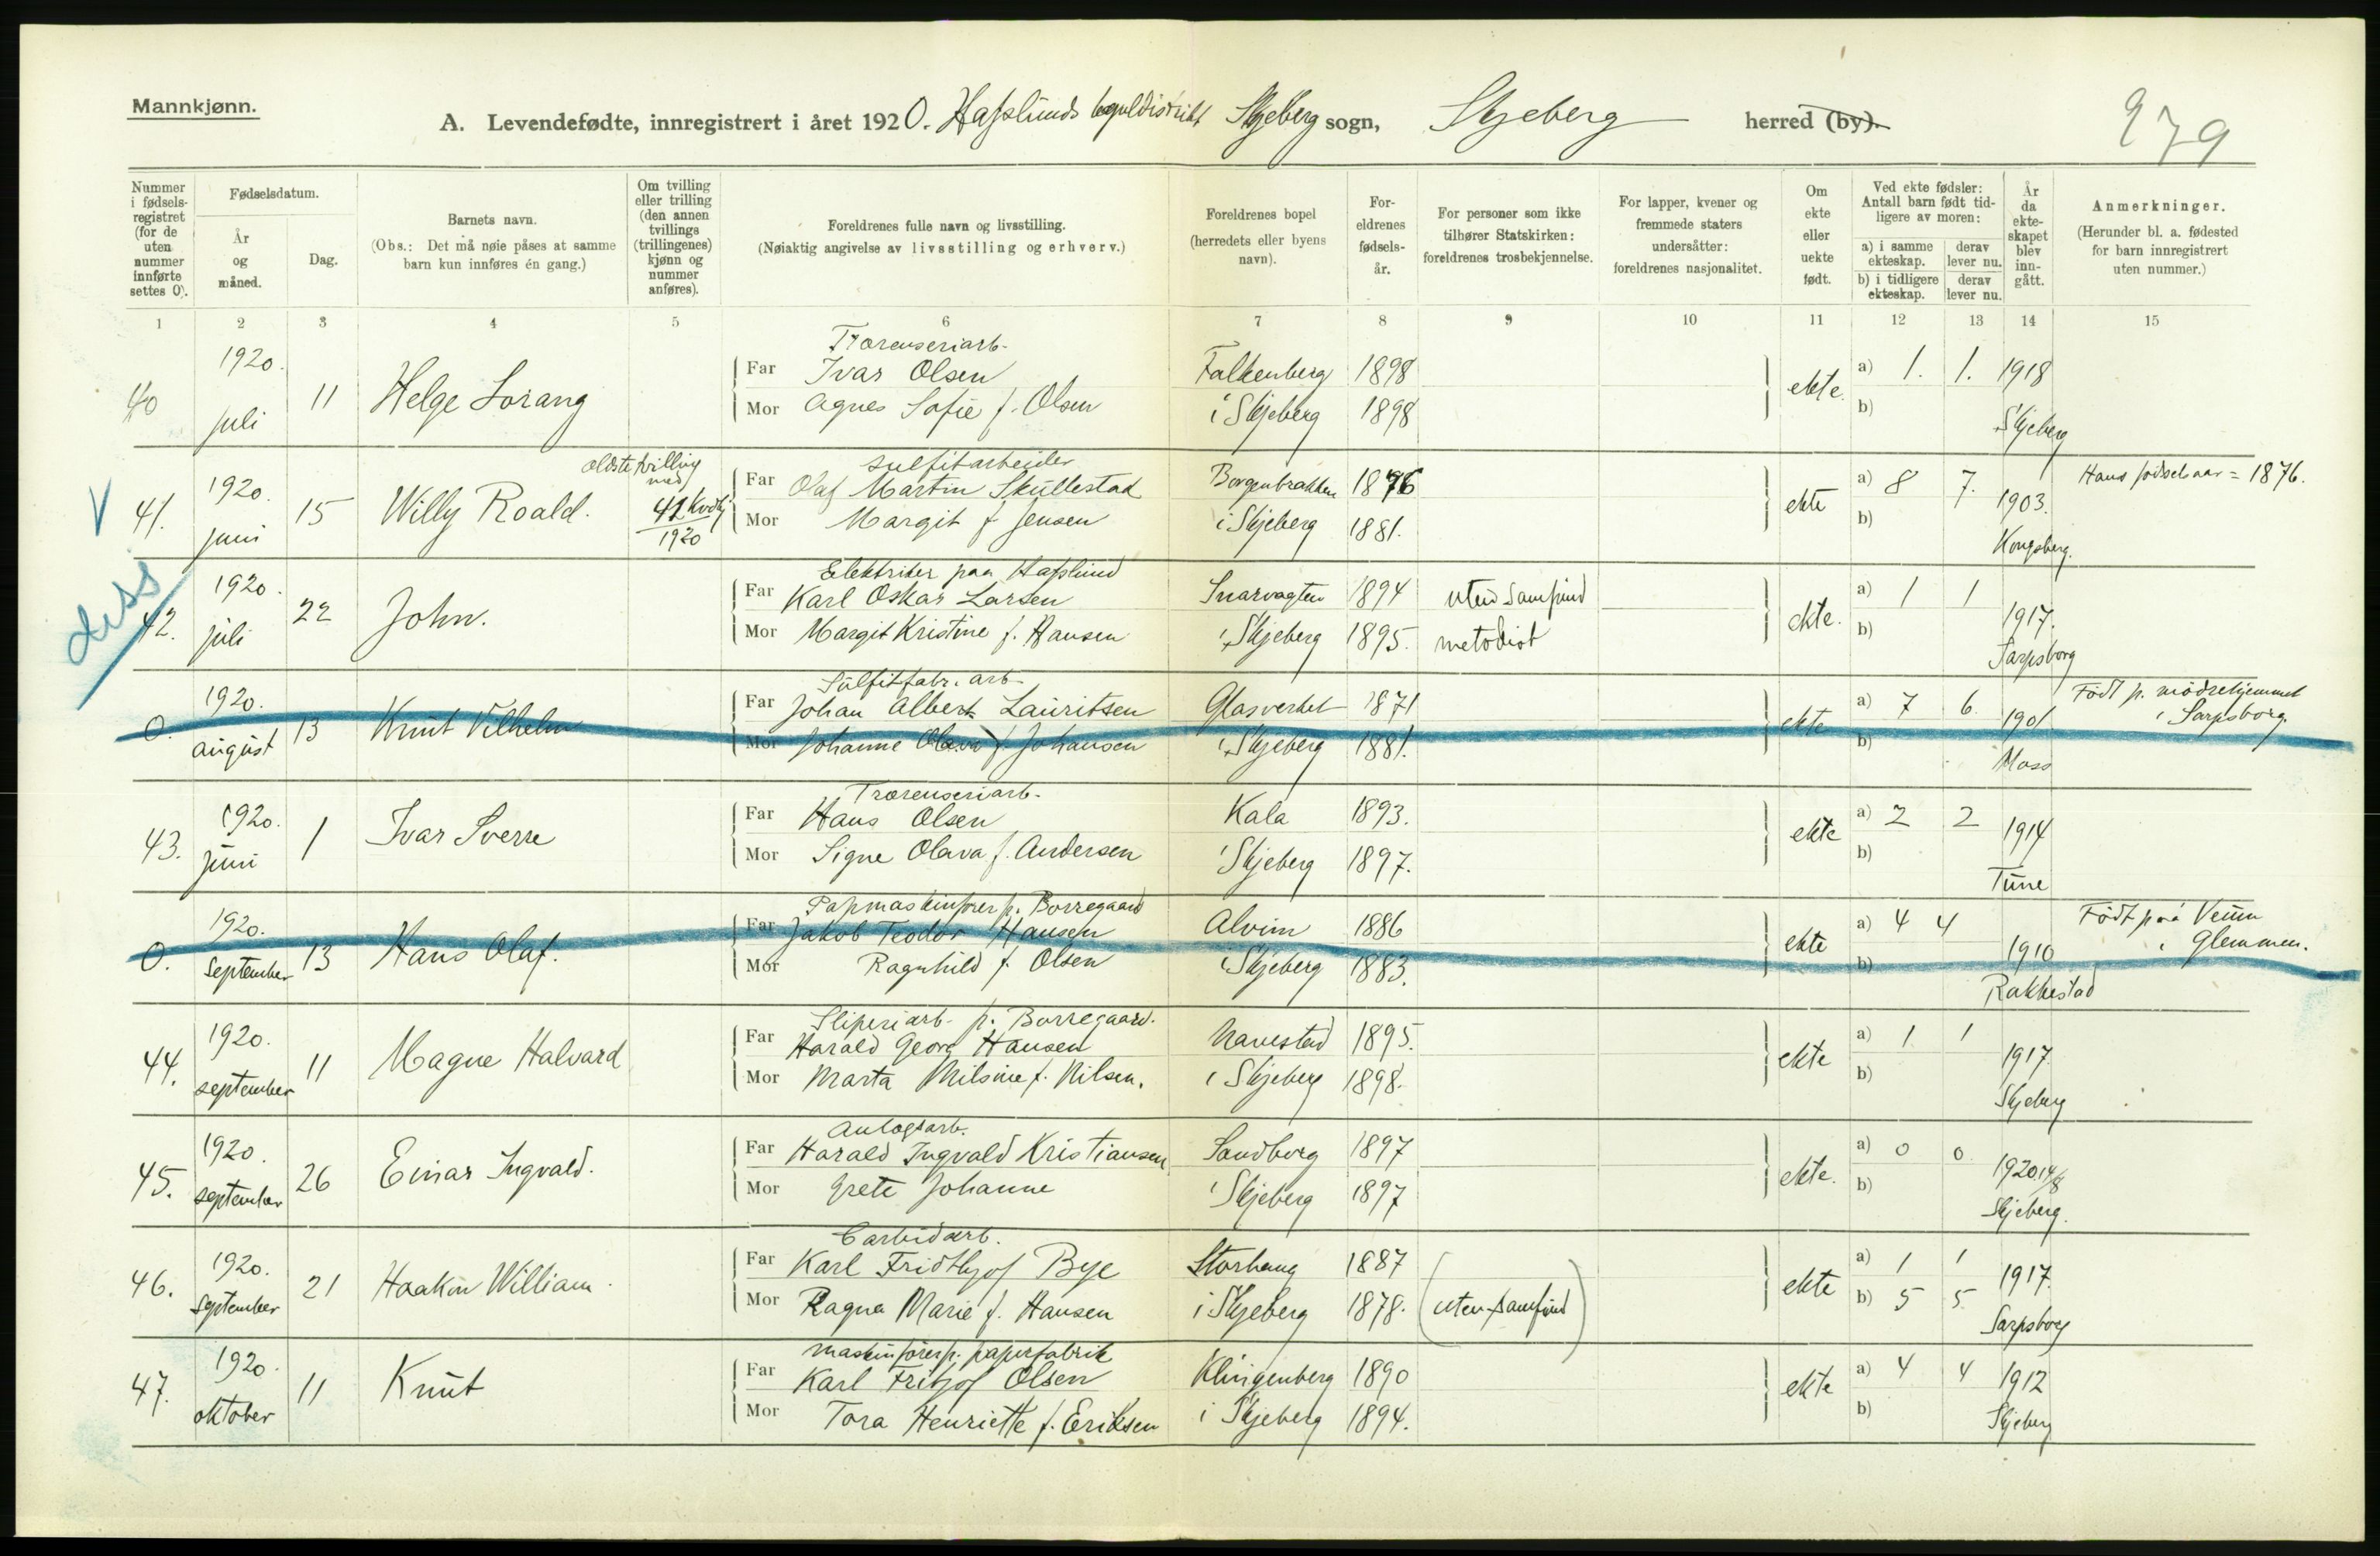 Mannkjønn.
A. Levendefødte, innregistrert i året 1920. Hafslunds kapeldistrikt Skjeberg sogn, Skjeberg herred (by).
279
Nummer i fødselsregistret (for de uten nummer innførte settes 0).
Fødselsdatum.
År og måned.
Dag.
Barnets navn.
(Obs.: Det må nøie påses at samme barn kun innføres én gang.)
Om tvilling eller trilling (den annen tvillings (trillingenes) kjønn og nummer anføres).
Foreldrenes fulle navn og livsstilling.
(Nøiaktig angivelse av livsstilling og erhverv.)
Foreldrenes bopel (herredets eller byens navn).
Foreldrenes fødselsår.
For personer som ikke tilhører Statskirken: foreldrenes trosbekjennelse.
For lapper, kvener og fremmede staters undersåtter: foreldrenes nasjonalitet.
Om ekte eller uekte født.
Ved ekte fødsler: Antall barn født tidligere av moren:
a) i samme ekteskap.
derav lever nu.
b) i tidligere ekteskap.
derav lever nu.
År da ekteskapet blev inngått.
Anmerkninger.
(Herunder bl. a. fødested for barn innregistrert uten nummer.)
1 2 3 4 5 6 7 8 9 10 11 12 13 14 15
Træsenseriarb.
40 1920. juli 11 Helge Lorang
Far Ivar Olsen Falkenberg 1898
Mor Agnes Sofie f. Olsen i Skjeberg 1898
ekte. a) 1. 1. 1918
b) Skjeberg
Sulfitarbeider
V 41. 1920. juni 15 Willy Roald. ældste tvilling med 41 Kvdkj 1920
Far Olaf Martin Skullestad Borgenbrakken 1876
Mor Margit f. Jensen i Skjeberg 1881.
ekte a) 8 7. 1903. Hans fødselsaar = 1876.
b) Kongsberg.
Elektriker paa Hafslund
diss 42. 1920. juli 22 John.
Far Karl Oskar Larsen Snarvagten 1894 uten samfund
Mor Margit Kristine f. Hansen i Skjeberg 1895. metodist
ekte. a) 1 1 1917.
b) Sarpsborg
Sulfitfabr. arb.
0. 1920. august 13 Knut Vilhelm
Far Johan Albert Lauritsen Glasverket 1871
Mor Johanne Olava f. Johansen i Skjeberg 1881.
ekte a) 7 6 1901 Født p. mødrehjemmet i Sarpsborg.
b) Moss
Træsenseriarb.
43. 1920. juni 1 Ivar Sverre
Far Hans Olsen Kala 1893.
Mor Signe Olava f. Andersen i Skjeberg 1897.
ekte a) 2 2 1914
b) Tune
Papmaskinfører p. Borregaard
0. 1920. september 13 Hans Olaf.
Far Jakob Teodor Hansen Alvim 1886
Mor Ragnhild f. Olsen i Skjeberg 1883.
ekte a) 4 4 1910 Født paa Veum i Glemmen.
b) Rakkestad
Sliperiarb. p. Borregaard.
44. 1920. september 11 Magne Halvard
Far Harald Georg Hansen Navestad 1895.
Mor Marta Milsine f. Nilsen. i Skjeberg 1898.
ekte a) 1 1 1917
b) Skjeberg
Anlogsarb.
45. 1920. september 26 Einar Ingvald.
Far Harald Ingvald Kristiansen Sandberg 1897
Mor Grete Johanne i Skjeberg 1897
ekte. a) 0 0 1920 14/8
b) Skjeberg.
Carbidarb.
46. 1920. september 21 Haakon William.
Far Karl Fridthjof Bye Storhaug 1887
Mor Ragna Marie f. Hansen i Skjeberg 1878. (uten samfund)
ekte a) 1 1 1917.
b) 5 5 Sarpsborg
Maskinfører p. papirfabrik
47. 1920. oktober 11 Knut
Far Karl Fritjof Olsen Klingenberg 1890
Mor Tora Henriette f. Eriksen i Skjeberg 1894.
ekte a) 4 4 1912
b) Skjeberg